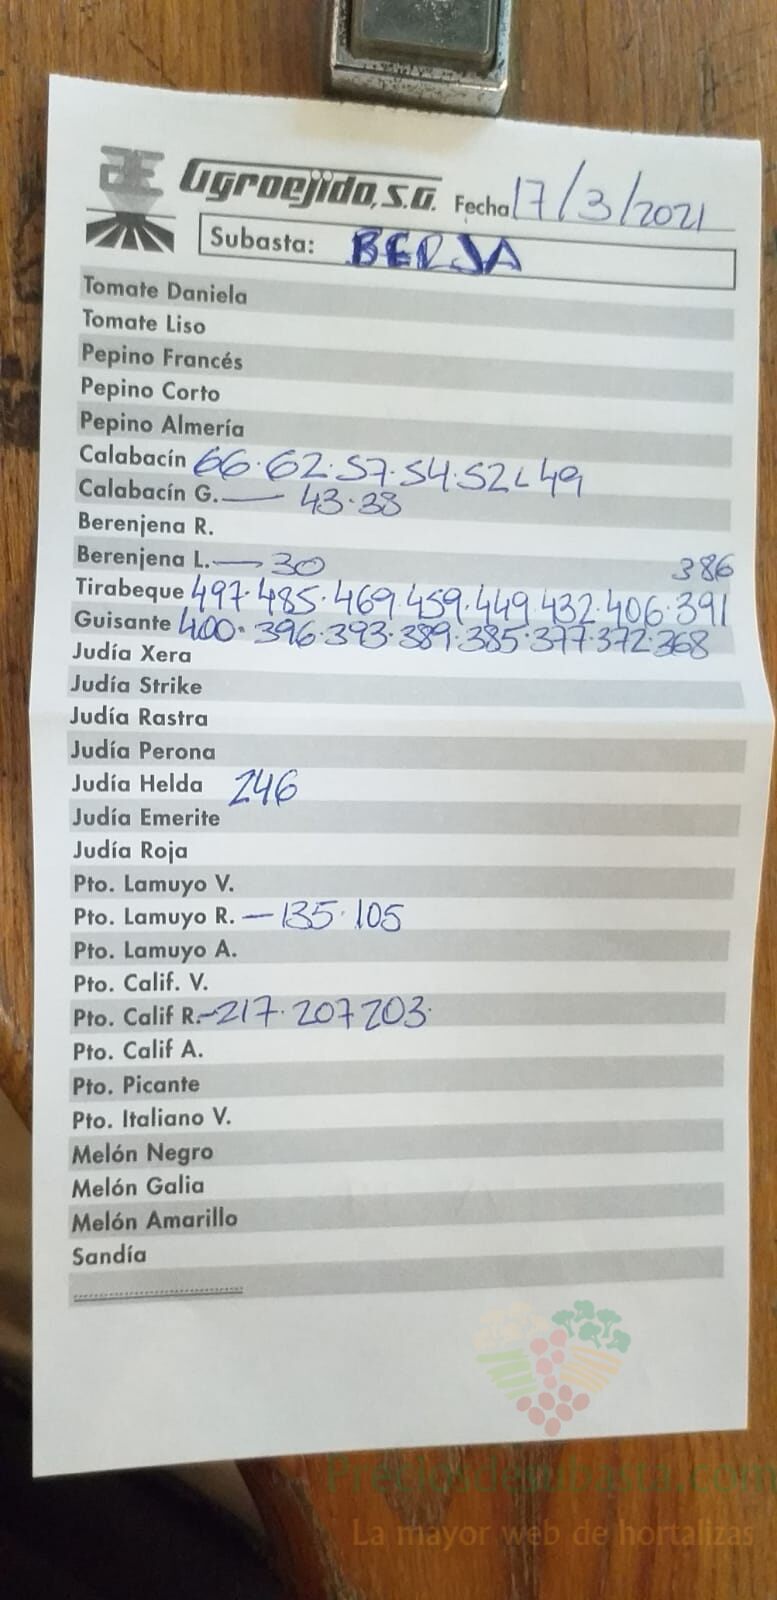 Agroejido, S.A. Fecha 17/3/2021
Subasta: BERJA
Tomate Daniela
Tomate Liso
Pepino Francés
Pepino Corto
Pepino Almería
Calabacín 66.62.57.54.52 49
Calabacín G. — 43.38
Berenjena R.
Berenjena L. — 30 386
Tirabeque 497.485.469.459.449.432.406.391
Guisante 400.396.393.389.385.377.372.368
Judía Xera
Judía Strike
Judía Rastra
Judía Perona
Judía Helda 246
Judía Emerite
Judía Roja
Pto. Lamuyo V.
Pto. Lamuyo R. — 135.105
Pto. Lamuyo A.
Pto. Calif. V.
Pto. Calif R. - 217.207 203.
Pto. Calif A.
Pto. Picante
Pto. Italiano V.
Melón Negro
Melón Galia
Melón Amarillo
Sandía
Preciosdesubasta.com
La mayor web de hortalizas